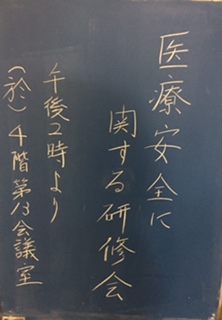 医療安全に
関する研修会
午後2時より
(於)4階第13会議室